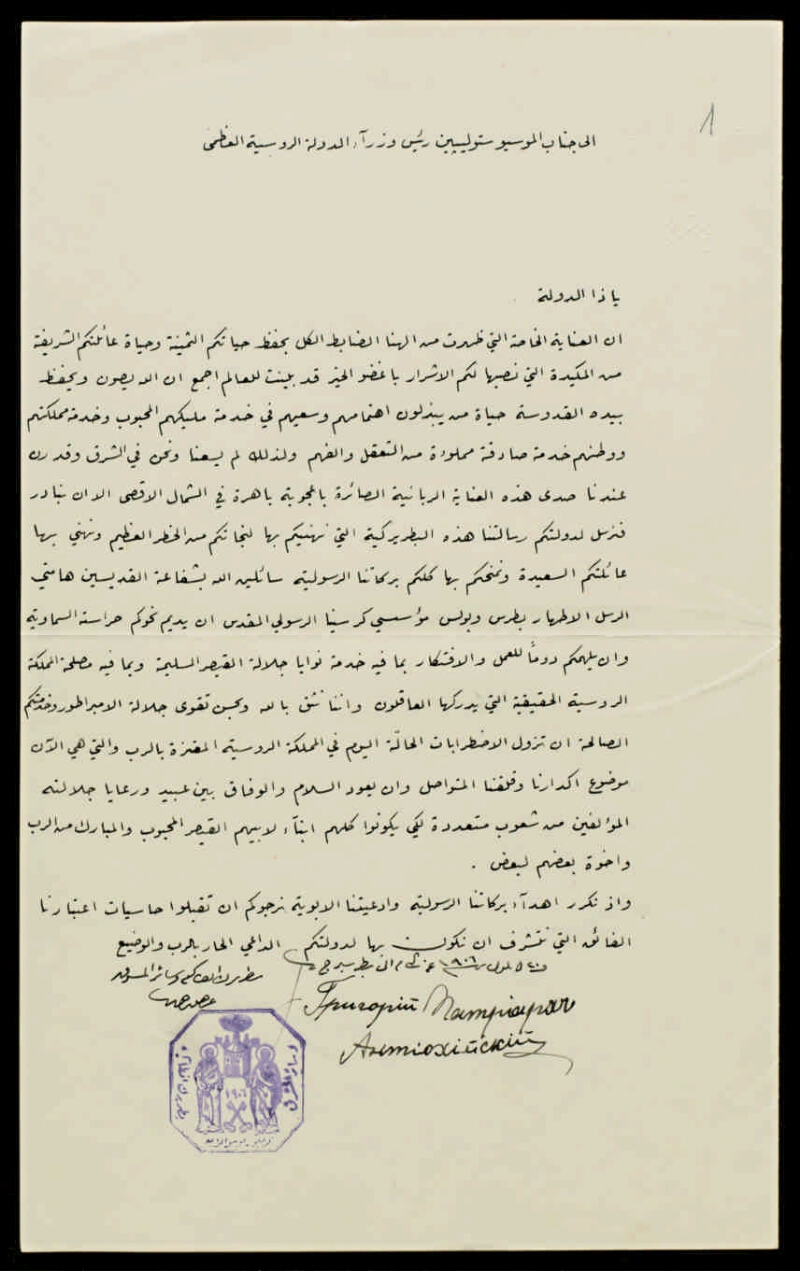 ١
الى جناب الموسيو ستوليپين رئيس وزرآء الدولة الروسية العظمى
يا ذا الدولة
ان العناية الخاصة التي ظهرت من الهنا الضابط الكل بحفظ حياتكم الثمينة وحياة عائلتكم الشريفة
من المكيدة التي نصبها لكم الاشرار باغضو الخير قد بينت للعالم اجمع ان الله يصون ويحفظ
بيده القدوسة حياة من يبذلون اهتمامهم وسعيهم في خدمة مليكهم المحبوب وخدمة مملكتهم
ووطنهم خدمة صادقة مملوءة من التعقل والفهم ولذلك لم يسعنا ونحن في الشرق وقد رن
عندنا صدى هذه العناية الربانية الصائرة باعجوبة باهرة في الشمال الاقصى الا ان نبادر
فنرسل لدولتكم رسالتنا هذه البطريركية التي نهنيكم بها لنجاتكم من الخطر العظيم ونهني بها
عائلتكم السعيدة ونمنحكم بها كلكم بركاتنا الرسولية سائلين الله بشفاعة القديسين هامتي
الرسل الاطهار بطرس وبولس مؤسسي كرسينا الرسولي المقدس ان يديم نحوكم حراسته السماوية
وان يلهمكم دوماً للعمل والافتكار بما فيه خدمة نوايا جلالة القيصر السليمة وبما فيه مصلحة المملكة
الروسية الحقيقية التي يدركها العاقلون واننا نثق بالله وبحسن تقوى جلالة الامبراطور وخدمتكم
الصالحة ان تزول الاضطرابات الحالّة اليوم في المملكة الروسية المعتزة بالرب والتي هي الآن
موضوع اكدارنا وقلقنا المتواصل وان يعود السلام والوفاق بين عبيد ورعايا جلالته
المؤلفين من شعوب متعددة لكي يكونوا كلهم ابنآء لابيهم القيصر المحبوب والمبارك من الرب
واخوة بعضهم لبعض .
واذ نكرر اهدآء بركاتنا الرسولية وادعيتنا الابوية نرجوكم ان تقبلوا حاسيات اعتبارنا
الفائق التي نتشرف ان نكون بها لدولتكم الداعي الحار بالرب والوضيع
Григорій Патріархъ
Антіохійскій
١٩٠٦